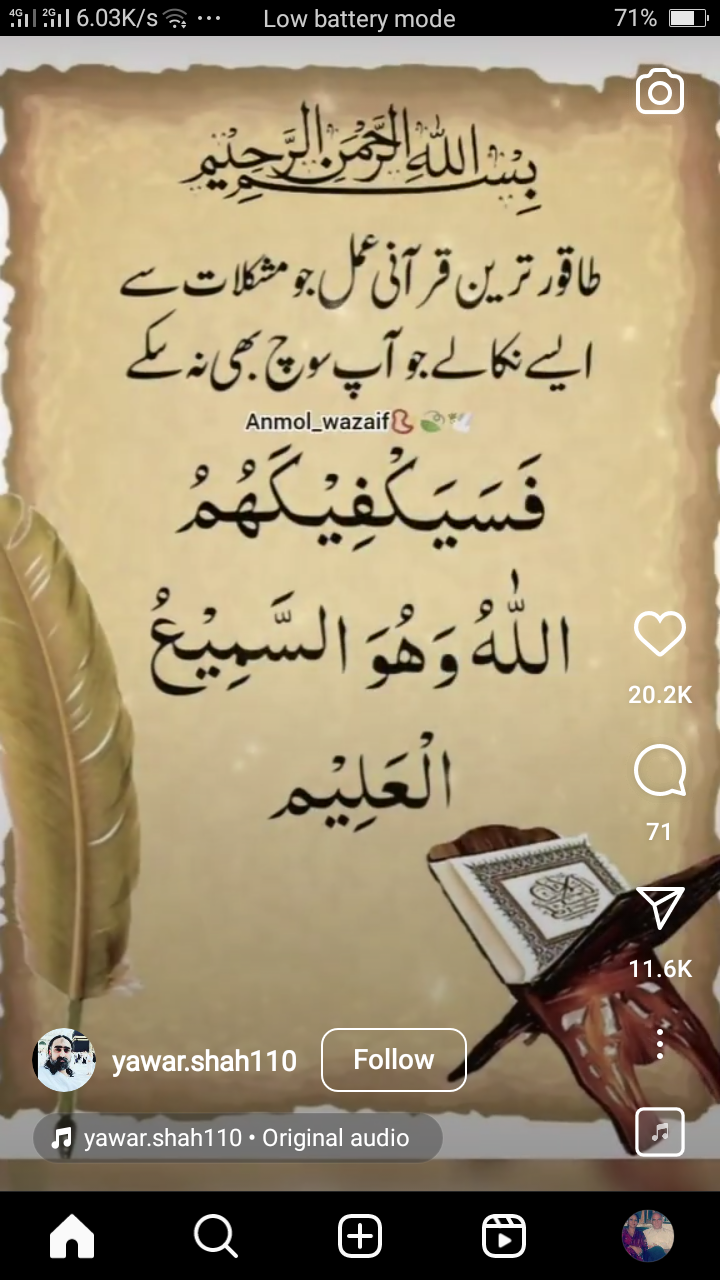 4G 2G 6.03K/s ... Low battery mode 71%
بِسْــــمِ اللهِ الرَّحْمٰنِ الرَّحِيْمِ
طاقور ترین قرآنی عمل جو مشکلات سے
ایسے نکالے جو آپ سوچ بھی نہ سکے
Anmol_wazaif
فَسَيَكْفِيْكَهُمُ
اللّٰهُ وَهُوَ السَّمِيْعُ
الْعَلِيْم
20.2K
71
11.6K
yawar.shah110 Follow
yawar.shah110 • Original audio